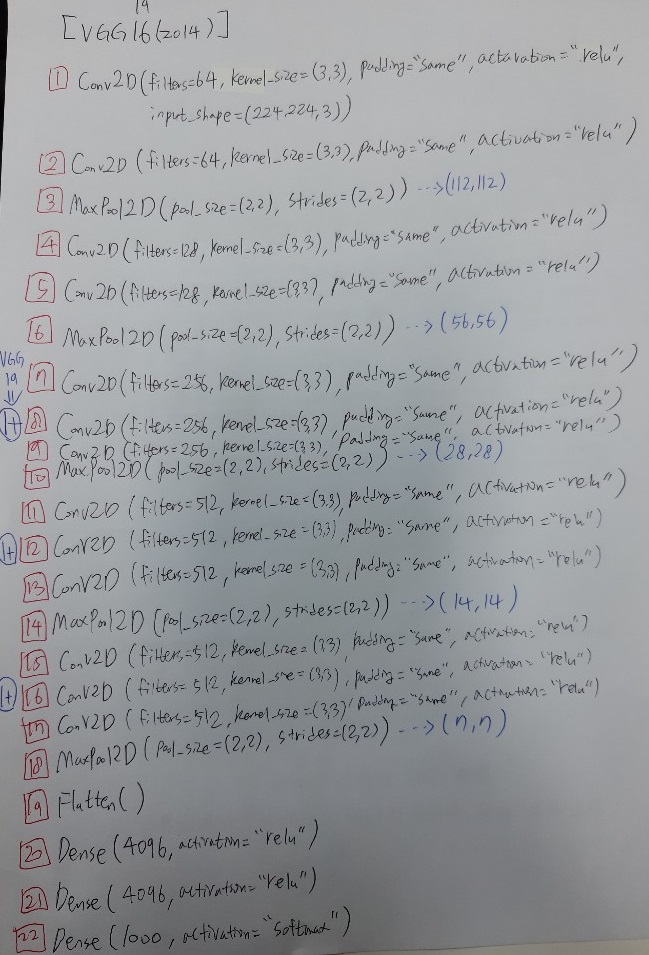 19
[VGG16(2014)]
1 Conv2D(filters=64, kernel_size=(3,3), padding="same", actavation="relu",
input_shape=(224,224,3))
2 Conv2D(filters=64, kernel_size=(3,3), padding="same", activation="relu")
3 MaxPool2D(pool_size=(2,2), strides=(2,2)) --->(112,112)
4 Conv2D(filters=128, kernel_size=(3,3), padding="same", activation="relu")
5 Conv2D(filters=128, kernel_size=(3,3), padding="same", activation="relu")
6 MaxPool2D(pool_size=(2,2), strides=(2,2)) --->(56,56)
VGG
19
⇓
7 Conv2D(filters=256, kernel_size=(3,3), padding="same", activation="relu")
1+ 8 Conv2D(filters=256, kernel_size=(3,3), padding="same", activation="relu")
9 Conv2D(filters=256, kernel_size=(3,3), padding="same", activation="relu")
10 MaxPool2D(pool_size=(2,2), strides=(2,2)) --->(28,28)
11 Conv2D(filters=512, kernel_size=(3,3), padding="same", activation="relu")
1+ 12 Conv2D(filters=512, kernel_size=(3,3), padding="same", activation="relu")
13 Conv2D(filters=512, kernel_size=(3,3), padding="same", activation="relu")
14 MaxPool2D(pool_size=(2,2), strides=(2,2)) --->(14,14)
15 Conv2D(filters=512, kernel_size=(3,3), padding="same", activation="relu")
1+ 16 Conv2D(filters=512, kernel_size=(3,3), padding="same", activation="relu")
17 Conv2D(filters=512, kernel_size=(3,3), padding="same", activation="relu")
18 MaxPool2D(pool_size=(2,2), strides=(2,2)) --->(7,7)
19 Flatten()
20 Dense(4096, activation="relu")
21 Dense(4096, activation="relu")
22 Dense(1000, activation="softmax")